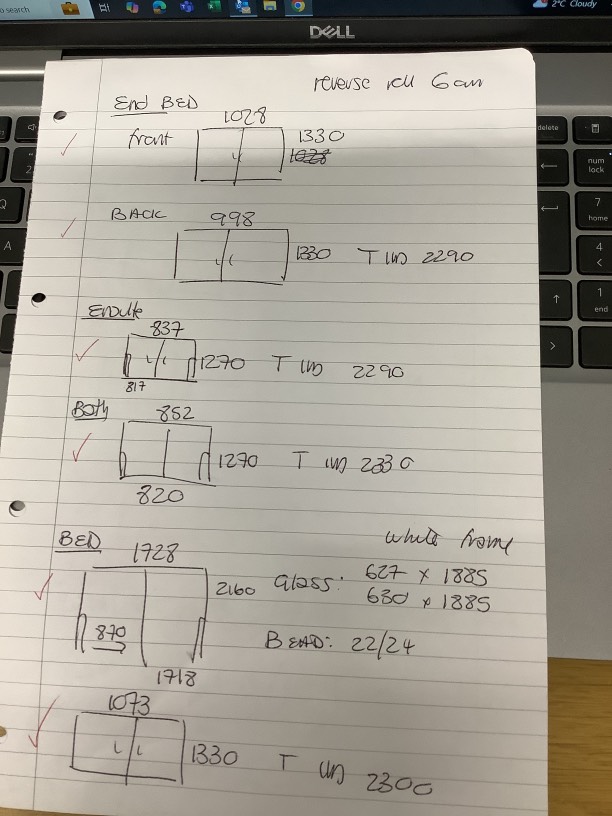 search
2°C Cloudy
DELL
reverse roll 6am
End BED
1028
front
1330
1028
BACK
998
1330 T un 2290
Ensuite
837
1270 T un 2290
817
Both
852
1270 T un 2330
820
BED
white frame
1728
2160 Glass: 627 x 1885
680 x 1885
870
BEAD: 22/24
1718
1073
1330 T un 2300
delete
num
lock
7
home
4
1
end
Q
A